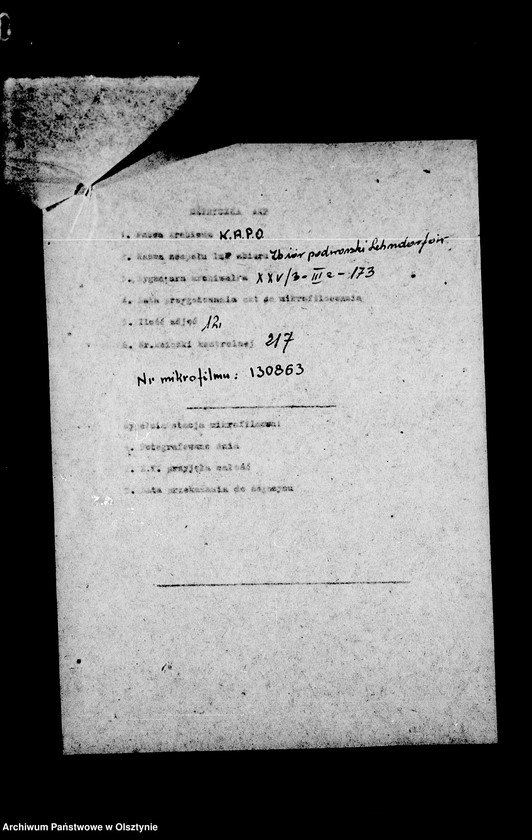 METRYCZKA AKT
1. Nazwa archiwum W.A.P.O.
2. Nazwa zespołu lub zbioru Zbiór podworski Lehndorfów
3. Sygnatura archiwalna XXV/3-III e-173
4. Data przygotowania akt do mikrofilmowania
5. Ilość zdjęć 12.
6. Nr. książki kontrolnej 217
Nr mikrofilmu: 130863
Wypełnia stacja mikrofilmowa:
1. Fotografowano dnia
2. K.T. przyjęła całość
3. Data przekazania do magazynu
Archiwum Państwowe w Olsztynie